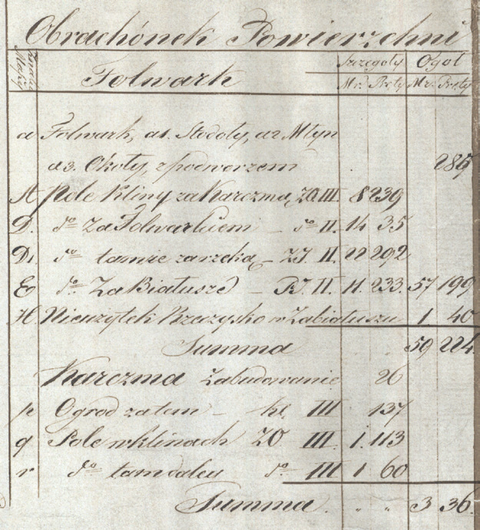 Obrachónek Powierzchni
Szczegoły Ogoł
Folwark Mr: Pręty Mr: Pręty
a Folwark, a1. Stodoły, a2 Młyn
a3. Okoły, z podworzem 285
A Pole Kliny za Karczmą, ZO III. 8 239
D. do za Folwarkiem — do II. 14 35
D1 do tamże za rzeką — ZJ II. 22 292
E do Za Biatusze — RJ. II. 11. 233. 57 199
H Nieużytek Rzaczysko w Zabiatuszu 1 40
Summa 59 224
Karczma Zabudowanie 26
p Ogrod za tem — kl III 137
q Pole w klinach ZO III. 1. 113
r do tam daley do III 1 60
Summa. " " 3 36.